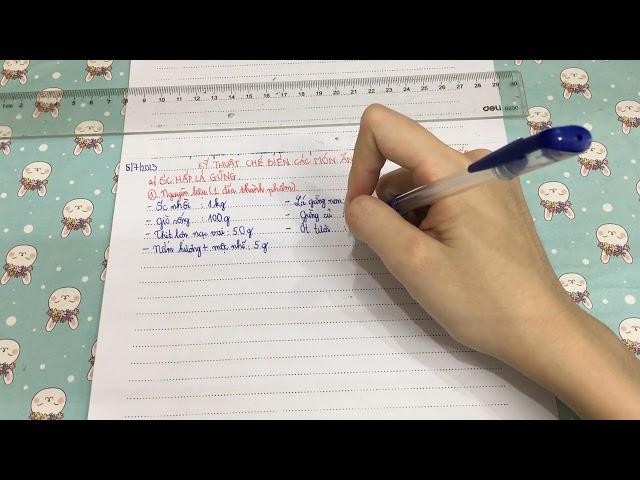 5/7/2023
KỸ THUẬT CHẾ BIẾN CÁC MÓN ĂN
a/ ỐC HẤP LÁ GỪNG
① Nguyên liệu (1 đĩa thành phẩm)
- Ốc nhồi : 1kg - Lá gừng non
- giò sống : 100g - Gừng củ
- Thịt lớn nạc vai : 50g - Ớt tươi
- Nấm hương + mộc nhĩ : 5g
deli 6230
0 1 2 3 4 5 6 7 8 9 10 11 12 13 14 15 16 17 18 19 20 21 22 23 24 25 26 27 28 29 30